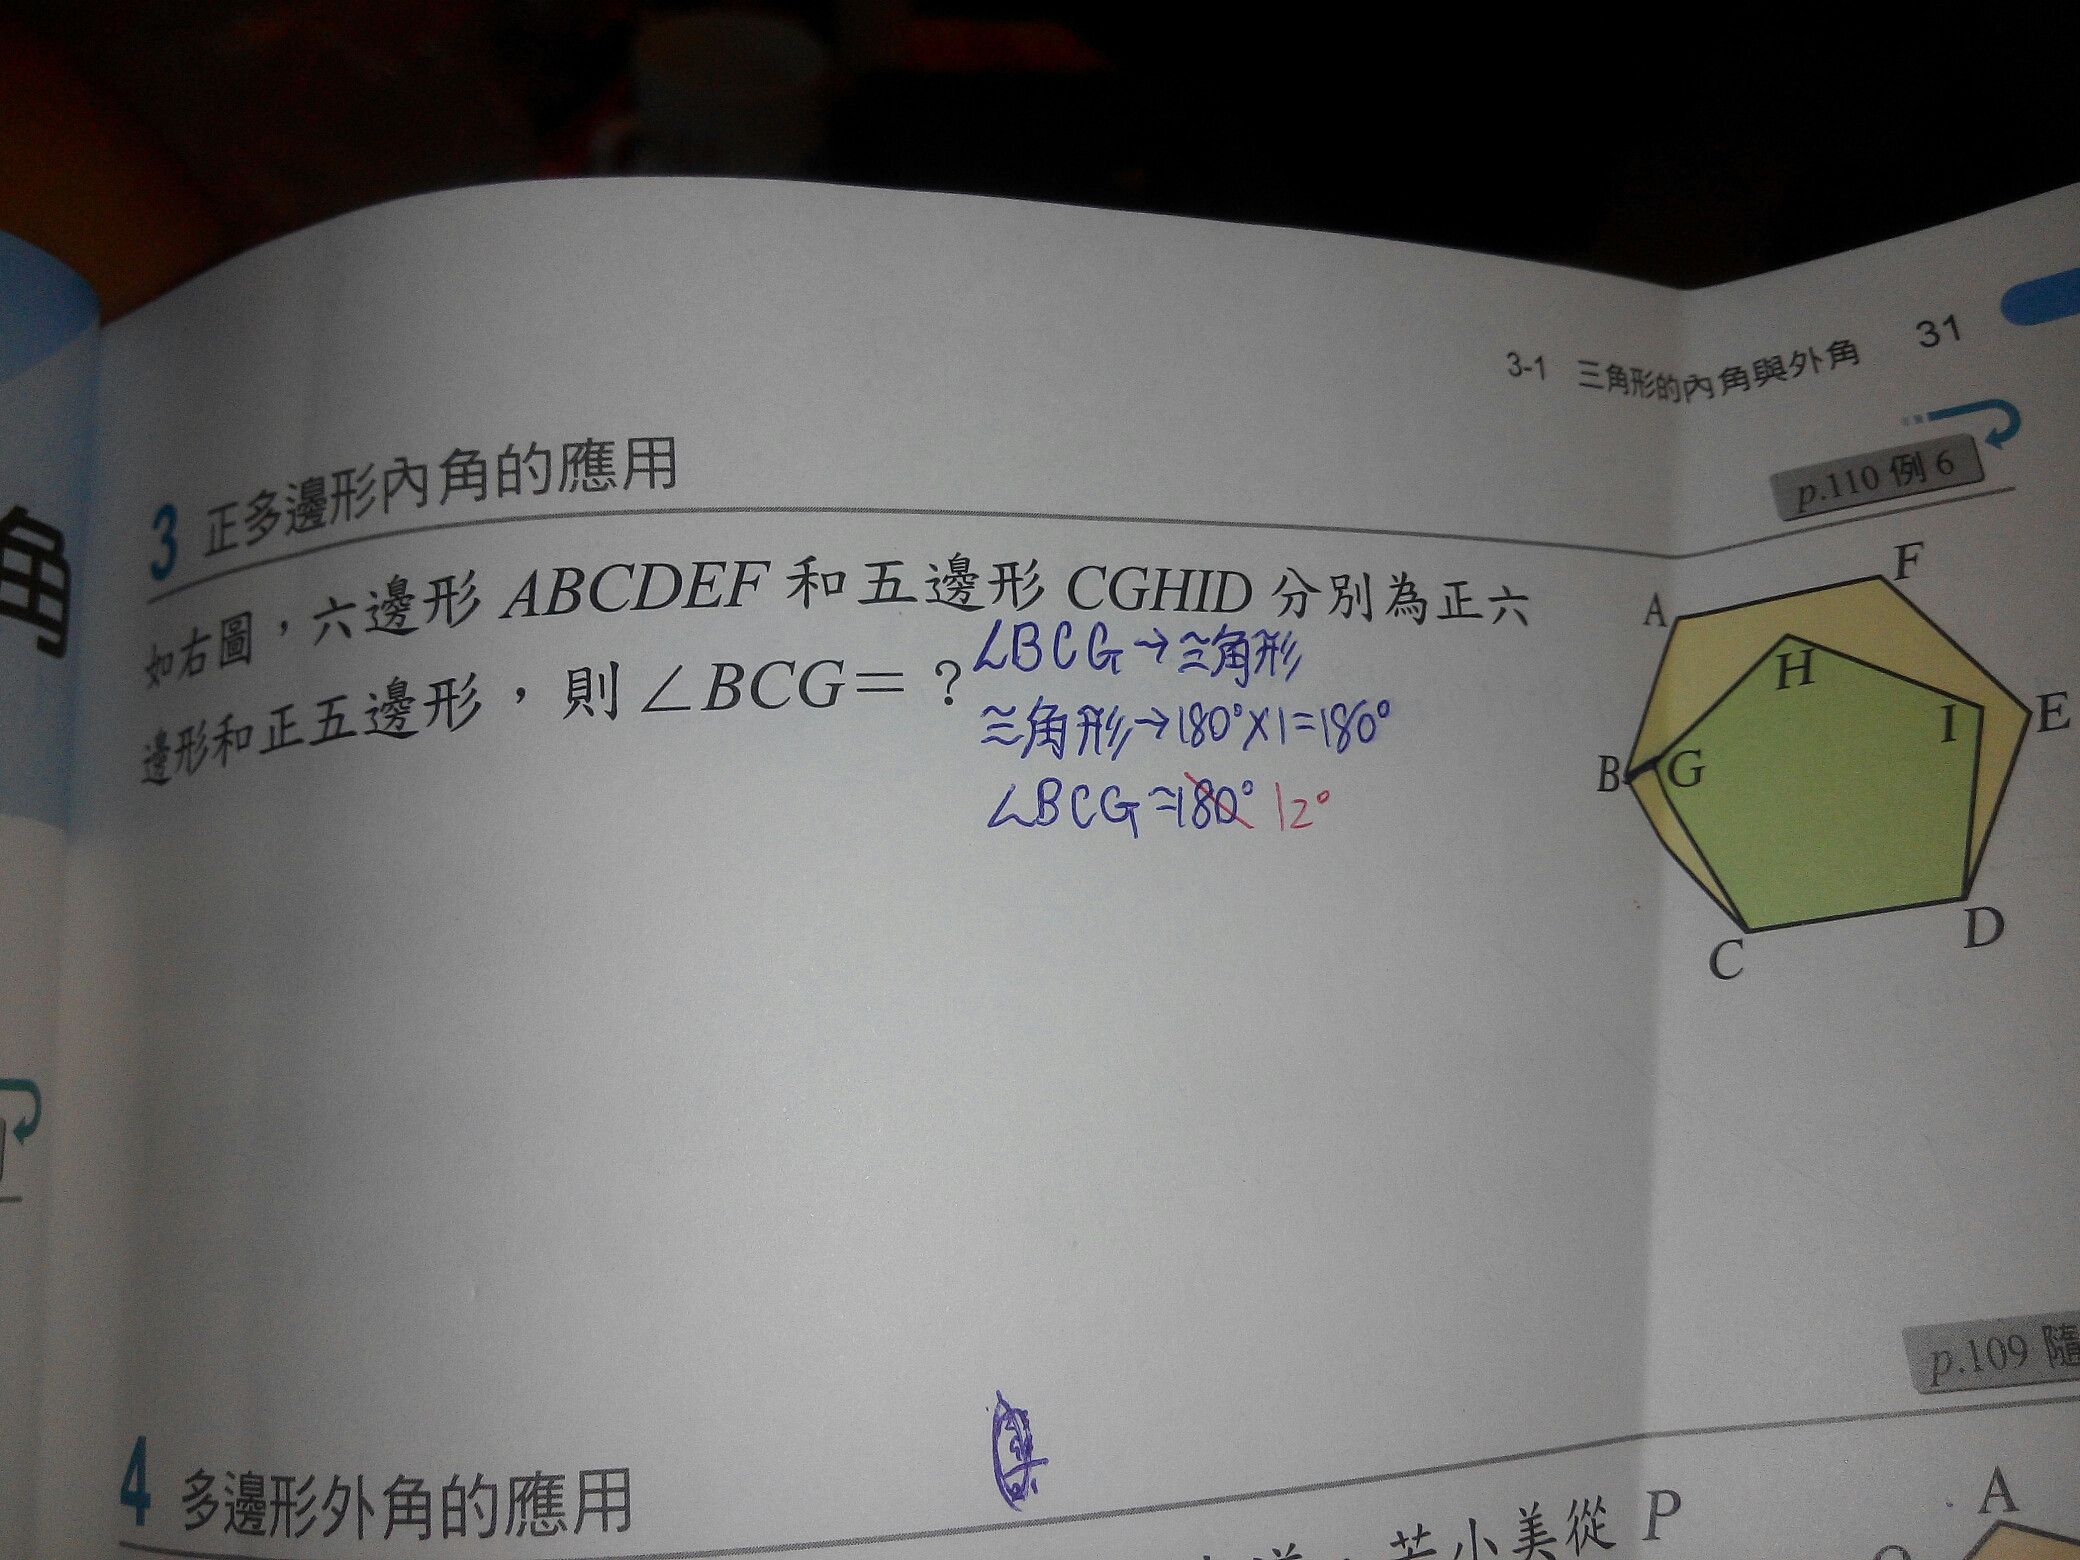 3-1 三角形的內角與外角 31
角
3 正多邊形內角的應用
p.110 例 6
如右圖，六邊形 ABCDEF 和五邊形 CGHID 分別為正六
邊形和正五邊形，則 ∠BCG＝？
∠BCG→三角形
三角形→180°×1=180°
∠BCG=180° 12°
A
F
H
I
E
B
G
C
D
p.109 隨
4 多邊形外角的應用
若小美從 P
A